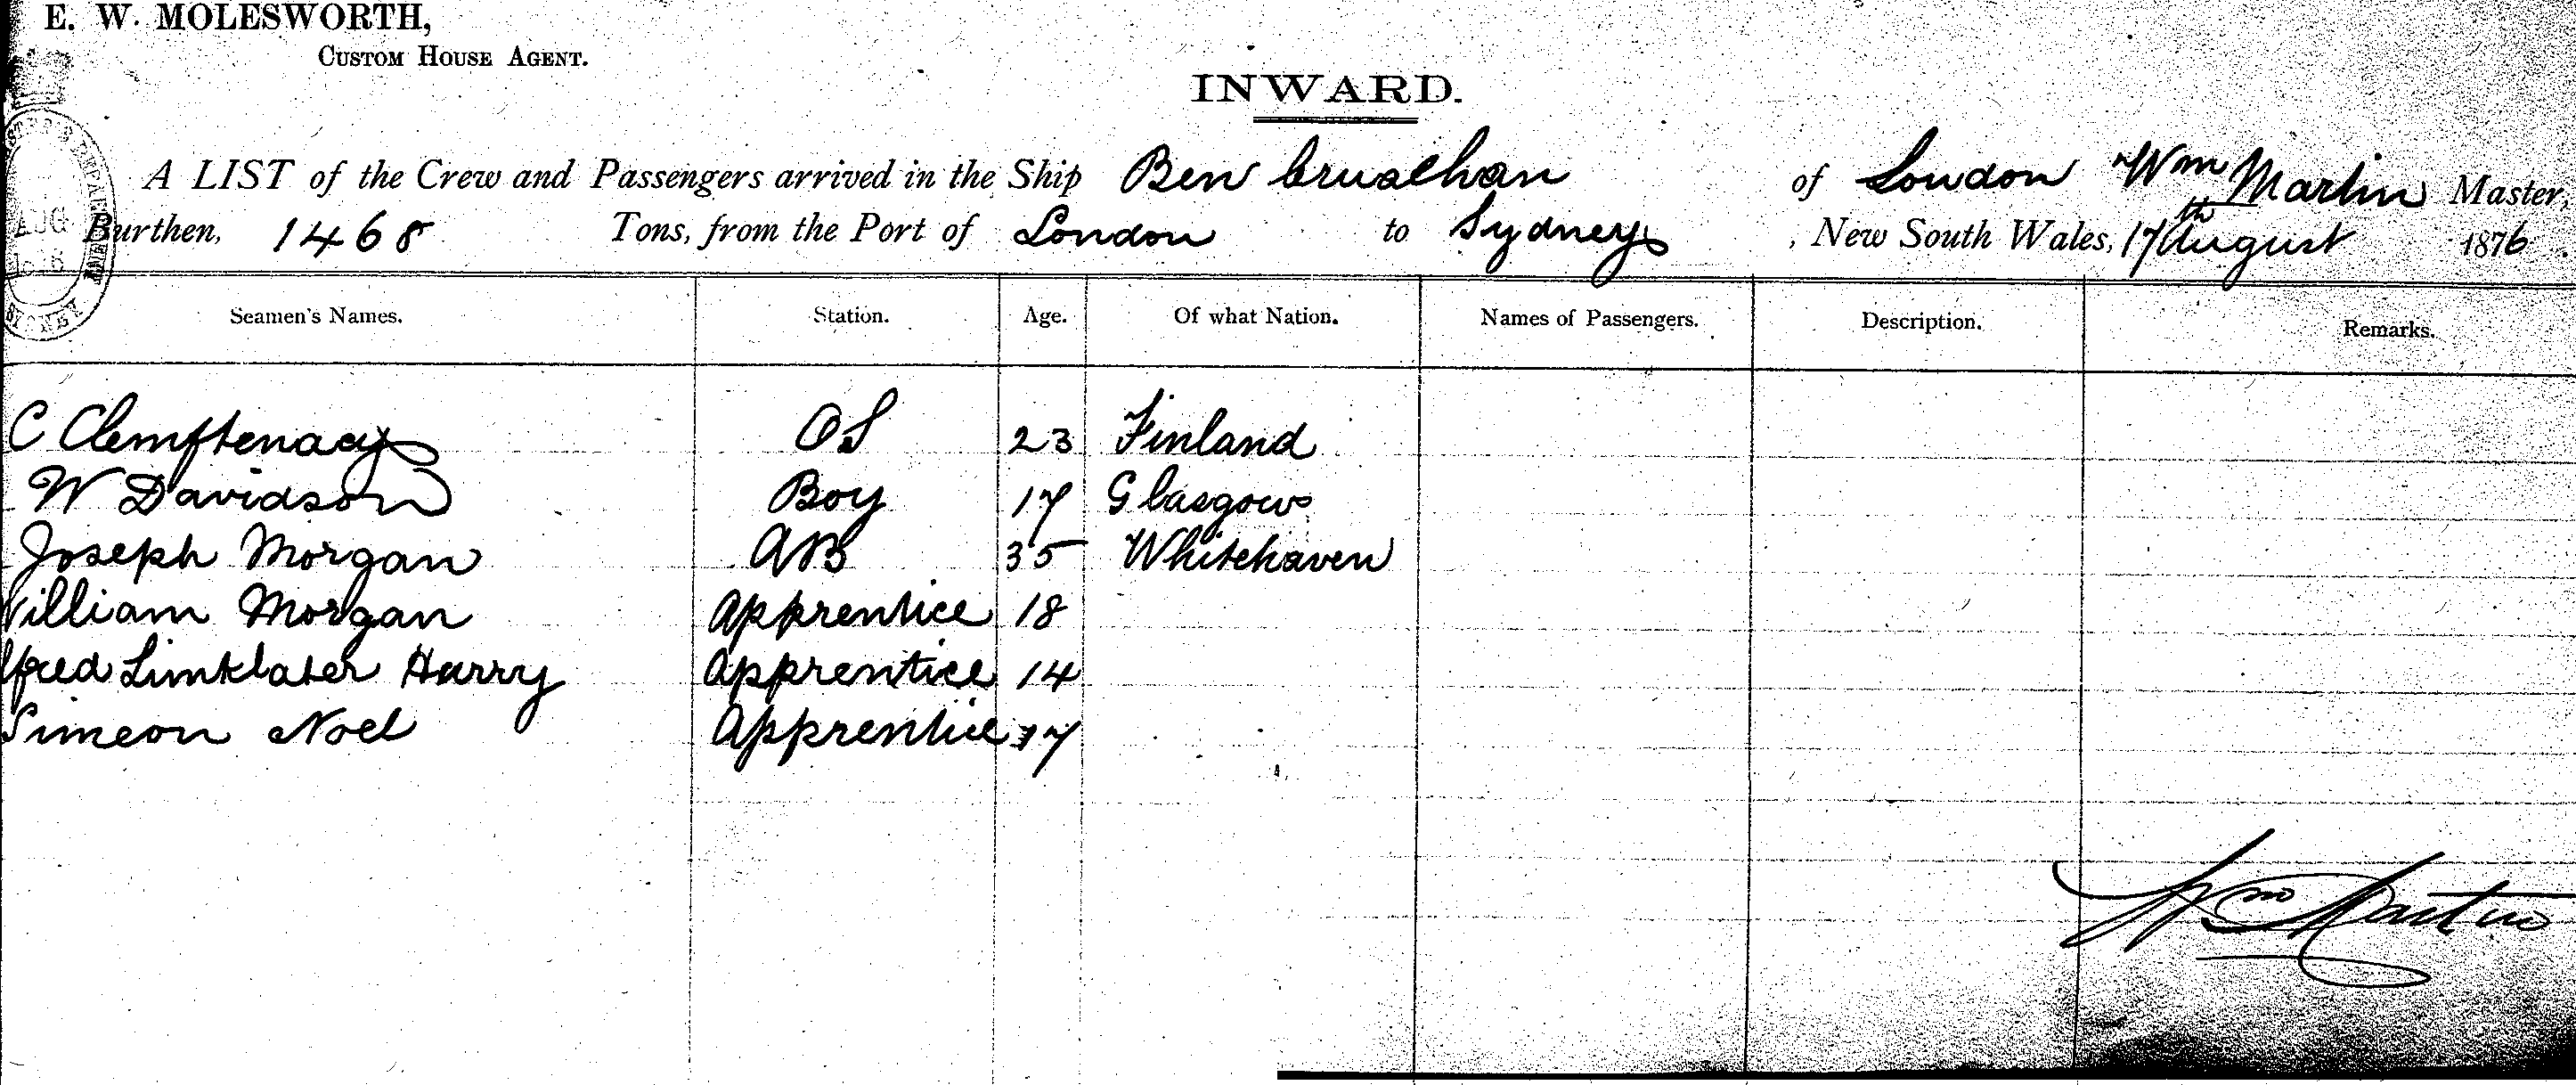 E. W. MOLESWORTH,
CUSTOM HOUSE AGENT.
INWARD.
A LIST of the Crew and Passengers arrived in the Ship Ben Cruachan of London Wm Martin Master,
Burthen, 1468 Tons, from the Port of London to Sydney, New South Wales, 17th August 1876
Seamen's Names. Station. Age. Of what Nation. Names of Passengers. Description. Remarks.
C OS 23 Finland
W Davidson Boy 17 Glasgow
Joseph Morgan AB 35 Whitehaven
William Morgan Apprentice 18
lfred Linklater Harry Apprentice 14
Simeon Noel Apprentice 17
Wm Martin
AUG
SYDNEY